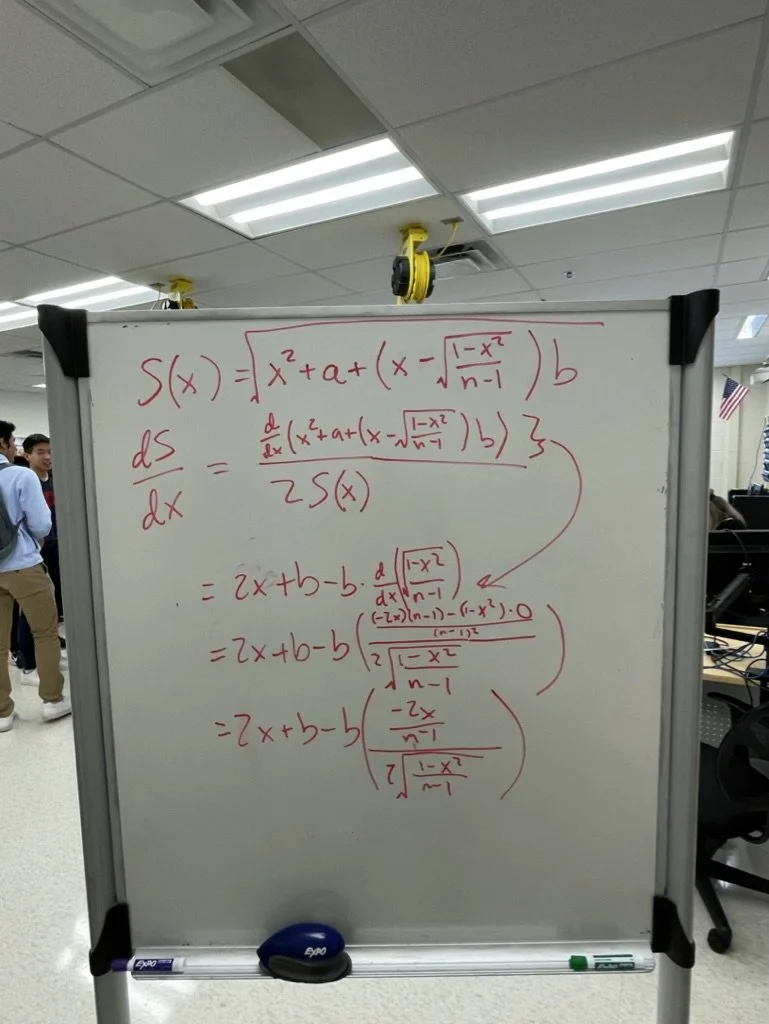 S(x) = √(x² + a + (x − √((1−x²)/(n−1))) b)
dS/dx = (d/dx (x² + a + (x − √((1−x²)/(n−1))) b)) / (2S(x)) }
= 2x + b − b · d/dx (√((1−x²)/(n−1)))
= 2x + b − b ((((−2x)(n−1) − (1−x²)·0)/((n−1)²)) / (2√((1−x²)/(n−1))))
= 2x + b − b (((−2x)/(n−1)) / (2√((1−x²)/(n−1))))
EXPO
EXPO